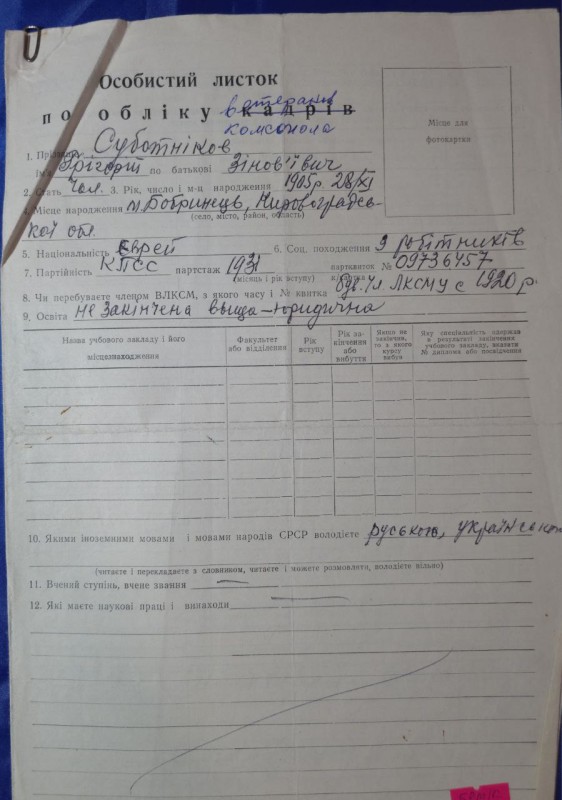 Особистий листок
по обліку кадрів ветеранів
комсомола
1. Прізвище Суботніков
Ім'я Грігорій по батькові Зінов'ївич
2. Стать Чол. 3. Рік, число і м-ц народження 1905р. 28/XI
4. Місце народження м. Бобринець, Кировоградсь-
(село, місто, район, область)
кої обл.
5. Національність Єврей 6. Соц. походження з робітників
7. Партійність КПСС партстаж 1931 партквиток № 09736457
(місяць і рік вступу)
8. Чи перебуваєте членом ВЛКСМ, з якого часу і № квитка був чл ЛКСМУ с 1920 р.
9. Освіта не закінчена вища – юридична
Назва учбового закладу і його місцезнаходження
Факультет або відділення
Рік вступу
Рік закінчення або вибуття
Якщо не закінчив, то з якого курсу вибув
Яку спеціальність одержав в результаті закінчення учбового закладу, вказати № диплома або посвідчення
10. Якими іноземними мовами і мовами народів СРСР володієте руською, українською
(читаєте і перекладаєте з словником, читаєте і можете розмовляти, володієте вільно)
11. Вчений ступінь, вчене звання —
12. Які маєте наукові праці і винаходи —
Місце для
фотокартки